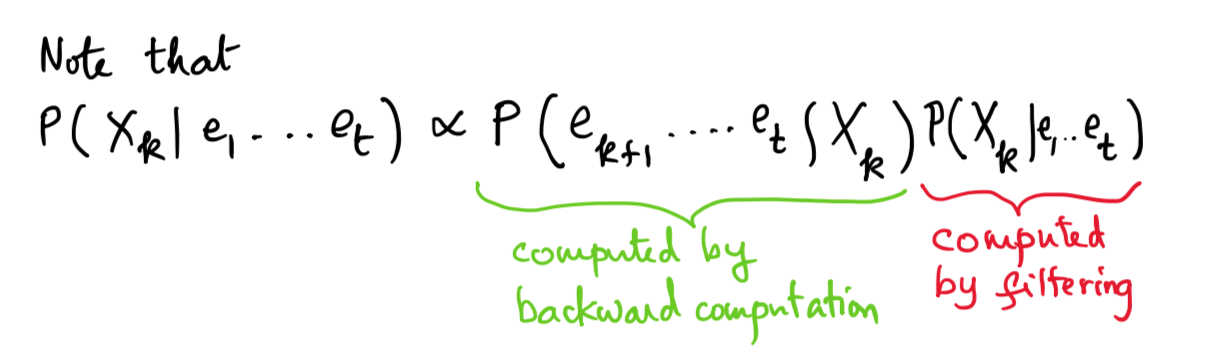 Note that
P( X_k | e_1 - ... e_t ) ∝ P ( e_{k+1} ..... e_t | X_k ) P(X_k | e_1 .. e_t )
computed by
backward computation
computed
by filtering